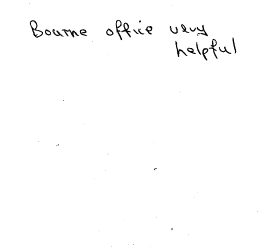 Bourne office very
helpful